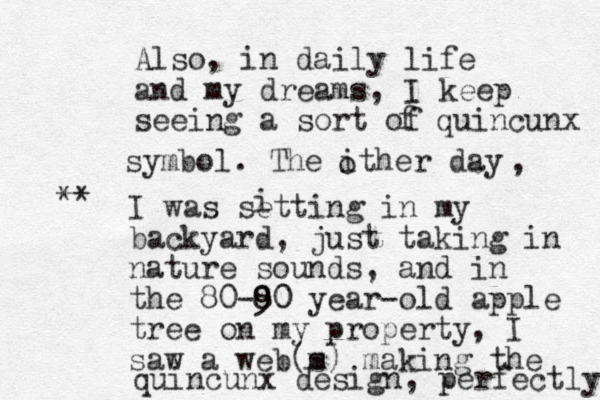 Also, in daily life
and my dreams, I keep
seeing a sort of quincunx
symbol. The other day,
** I was sitting in my
backyard, just taking in
nature sounds, and in
the 80-90 year-old apple
tree on my property, I
saw a web(s) making the
quincunx design, perfectly